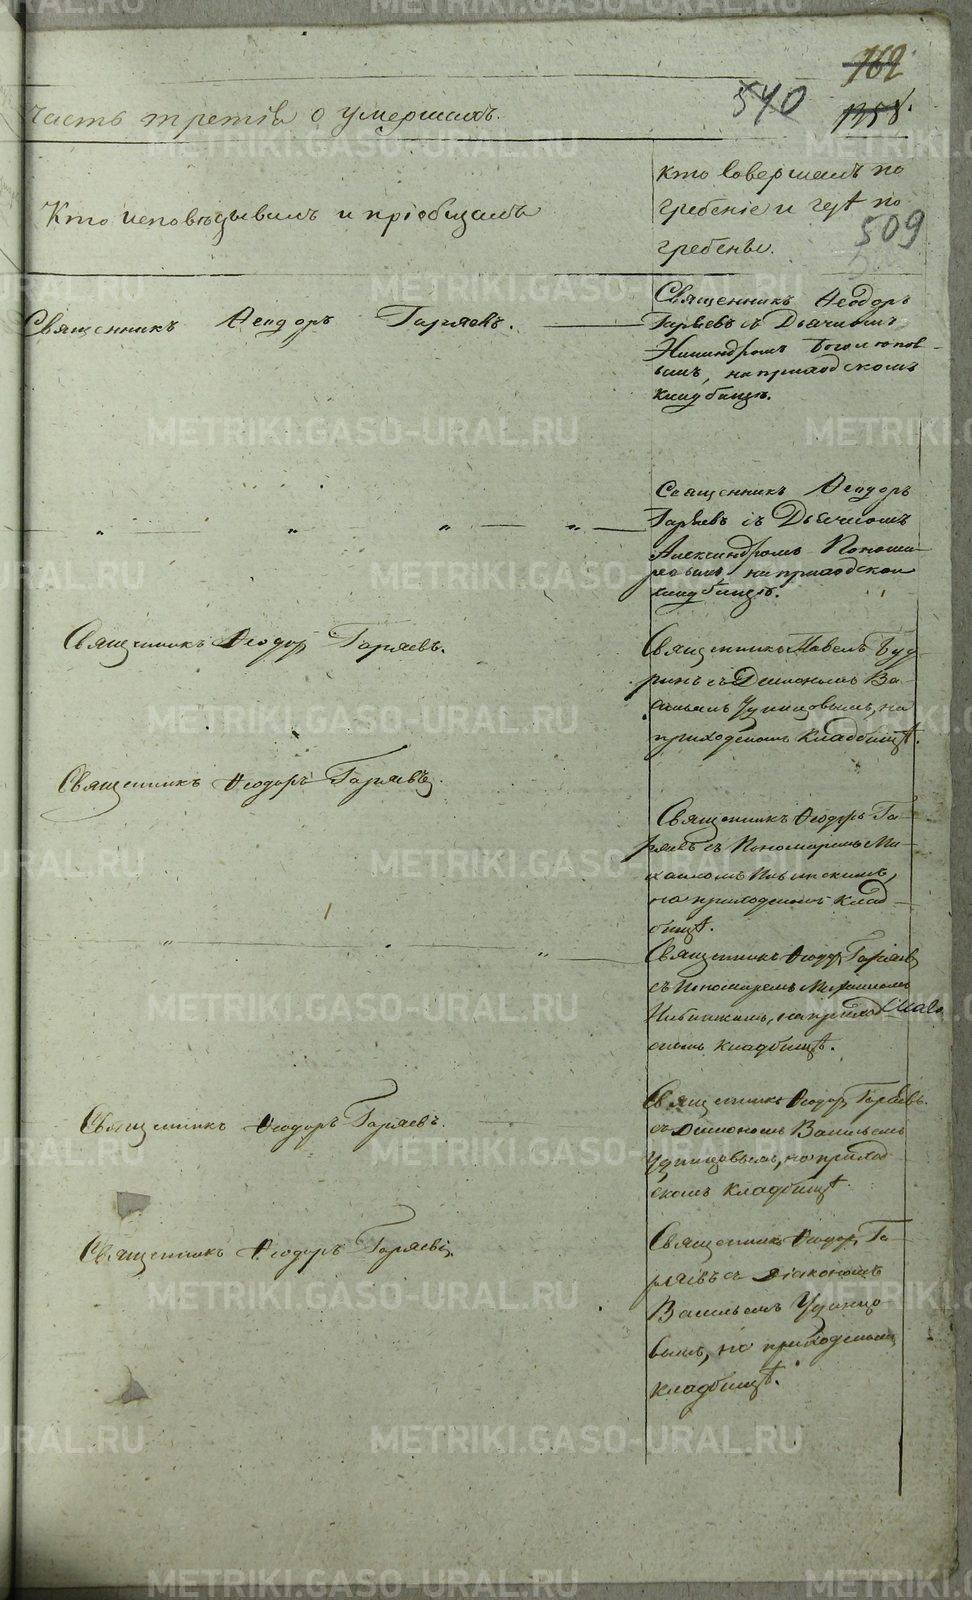 762
540
1358
Часть третія о умершихъ.
Кто исповѣдывалъ и пріобщалъ
кто совершалъ по
гребеніе и гдѣ по
гребены.
509
Священникъ Ѳеодоръ Гаряевъ.
Священникъ Ѳеодоръ
Гаряевъ съ Дьячкомъ
Никандромъ Боголюбов-
ымъ, на приходскомъ
кладбищѣ.
Священникъ Ѳеодоръ
Гаряевъ съ Дьячкомъ
Александромъ
на приходском
кладбищѣ.
Священникъ Ѳеодоръ Гаряевъ.
Священникъ Павелъ Буд-
ринъ съ Діакономъ Ва-
сильемъ Удинцовымъ, на
приходскомъ кладбищѣ.
Священникъ Ѳеодоръ Гаряевъ.
Священникъ Ѳеодоръ Га-
ряевъ съ Пономаремъ Ми-
хаиломъ
на приходскомъ клад-
бищѣ.
Священникъ Ѳеодоръ Гаряевъ
съ Пономаремъ
на приход
скомъ кладбищѣ.
Священникъ Ѳеодоръ Гаряевъ.
Священникъ Ѳеодоръ Гаряевъ.
съ Діакономъ Васильемъ
Удинцовымъ, на приход
скомъ кладбищѣ.
Священникъ Ѳеодоръ Гаряевъ.
Священникъ Ѳеодоръ Га-
ряевъ съ Діакономъ
Васильемъ Удинцо-
вымъ, на приходскомъ
кладбищѣ.
METRIKI.GASO-URAL.RU